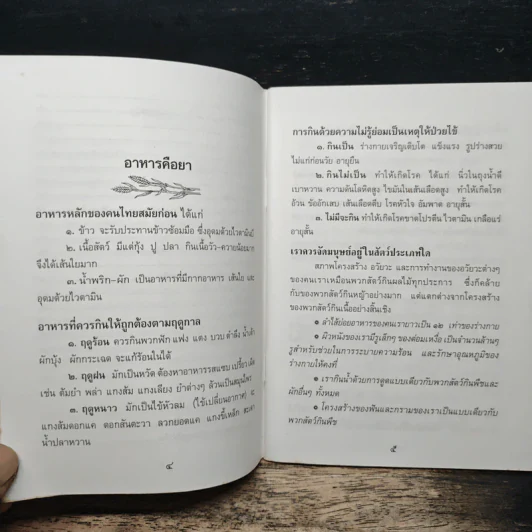 อาหารคือยา
อาหารหลักของคนไทยสมัยก่อน ได้แก่
๑. ข้าว จะรับประทานข้าวซ้อมมือ ซึ่งอุดมด้วยไวตามินบี
๒. เนื้อสัตว์ มีแต่กุ้ง ปู ปลา กินเนื้อวัว-ควายน้อยมาก
จึงได้เส้นใยมาก
๓. น้ำพริก-ผัก เป็นอาหารที่มีกากอาหาร เส้นใย และ
อุดมด้วยไวตามิน
อาหารที่ควรกินให้ถูกต้องตามฤดูกาล
๑. ฤดูร้อน ควรกินพวกฟัก แฟง แตง บวบ ตำลึง น้ำเต้า
ผักบุ้ง ผักกระเฉด จะแก้ร้อนในได้
๒. ฤดูฝน มักเป็นหวัด ต้องหาอาหารรสแซบ เปรี้ยว เผ็ด
เช่น ต้มยำ พล่า แกงส้ม แกงเลียง ยำต่างๆ ล้วนเป็นสมุนไพร
๓. ฤดูหนาว มักเป็นไข้หัวลม (ไข้เปลี่ยนอากาศ)
แกงส้มดอกแค ดอกสันตะวา ลวกยอดแค แกงขี้เหล็ก สะเดา
น้ำปลาหวาน
๔
การกินด้วยความไม่รู้ย่อมเป็นเหตุให้ป่วยไข้
๑. กินเป็น ร่างกายเจริญเติบโต แข็งแรง รูปร่างสวย
ไม่แก่ก่อนวัย อายุยืน
๒. กินไม่เป็น ทำให้เกิดโรค ได้แก่ นิ่วในถุงน้ำดี
เบาหวาน ความดันโลหิตสูง ไขมันในเส้นเลือดสูง ทำให้เกิดโรค
อ้วน ข้ออักเสบ เส้นเลือดตีบ โรคหัวใจ อัมพาต อายุสั้น
๓. ไม่มีจะกิน ทำให้เกิดขาดโปรตีน ไวตามิน เกลือแร่
อายุสั้น
เราควรจัดมนุษย์อยู่ในสัตว์ประเภทใด
สภาพโครงสร้าง อวัยวะ และการทำงานของอวัยวะต่างๆ
ของคนเราเหมือนพวกสัตว์กินผลไม้ทุกประการ ซึ่งก็คล้าย
กับของพวกสัตว์กินหญ้าอย่างมาก แต่แตกต่างจากโครงสร้าง
ของพวกสัตว์กินเนื้ออย่างสิ้นเชิง
ลำไส้ย่อยอาหารของคนเรายาวเป็น ๑๒ เท่าของร่างกาย
ผิวหนังของเรามีรูเล็กๆ ของต่อมเหงื่อ เป็นจำนวนล้านๆ
รูสำหรับช่วยในการระบายความร้อน และรักษาอุณหภูมิของ
ร่างกายให้คงที่
เรากินน้ำด้วยการดูดแบบเดียวกับพวกสัตว์กินพืชและ
ผักอื่นๆ ทั้งหมด
โครงสร้างของฟันและกรามของเราเป็นแบบเดียวกับ
พวกสัตว์กินพืช
๕